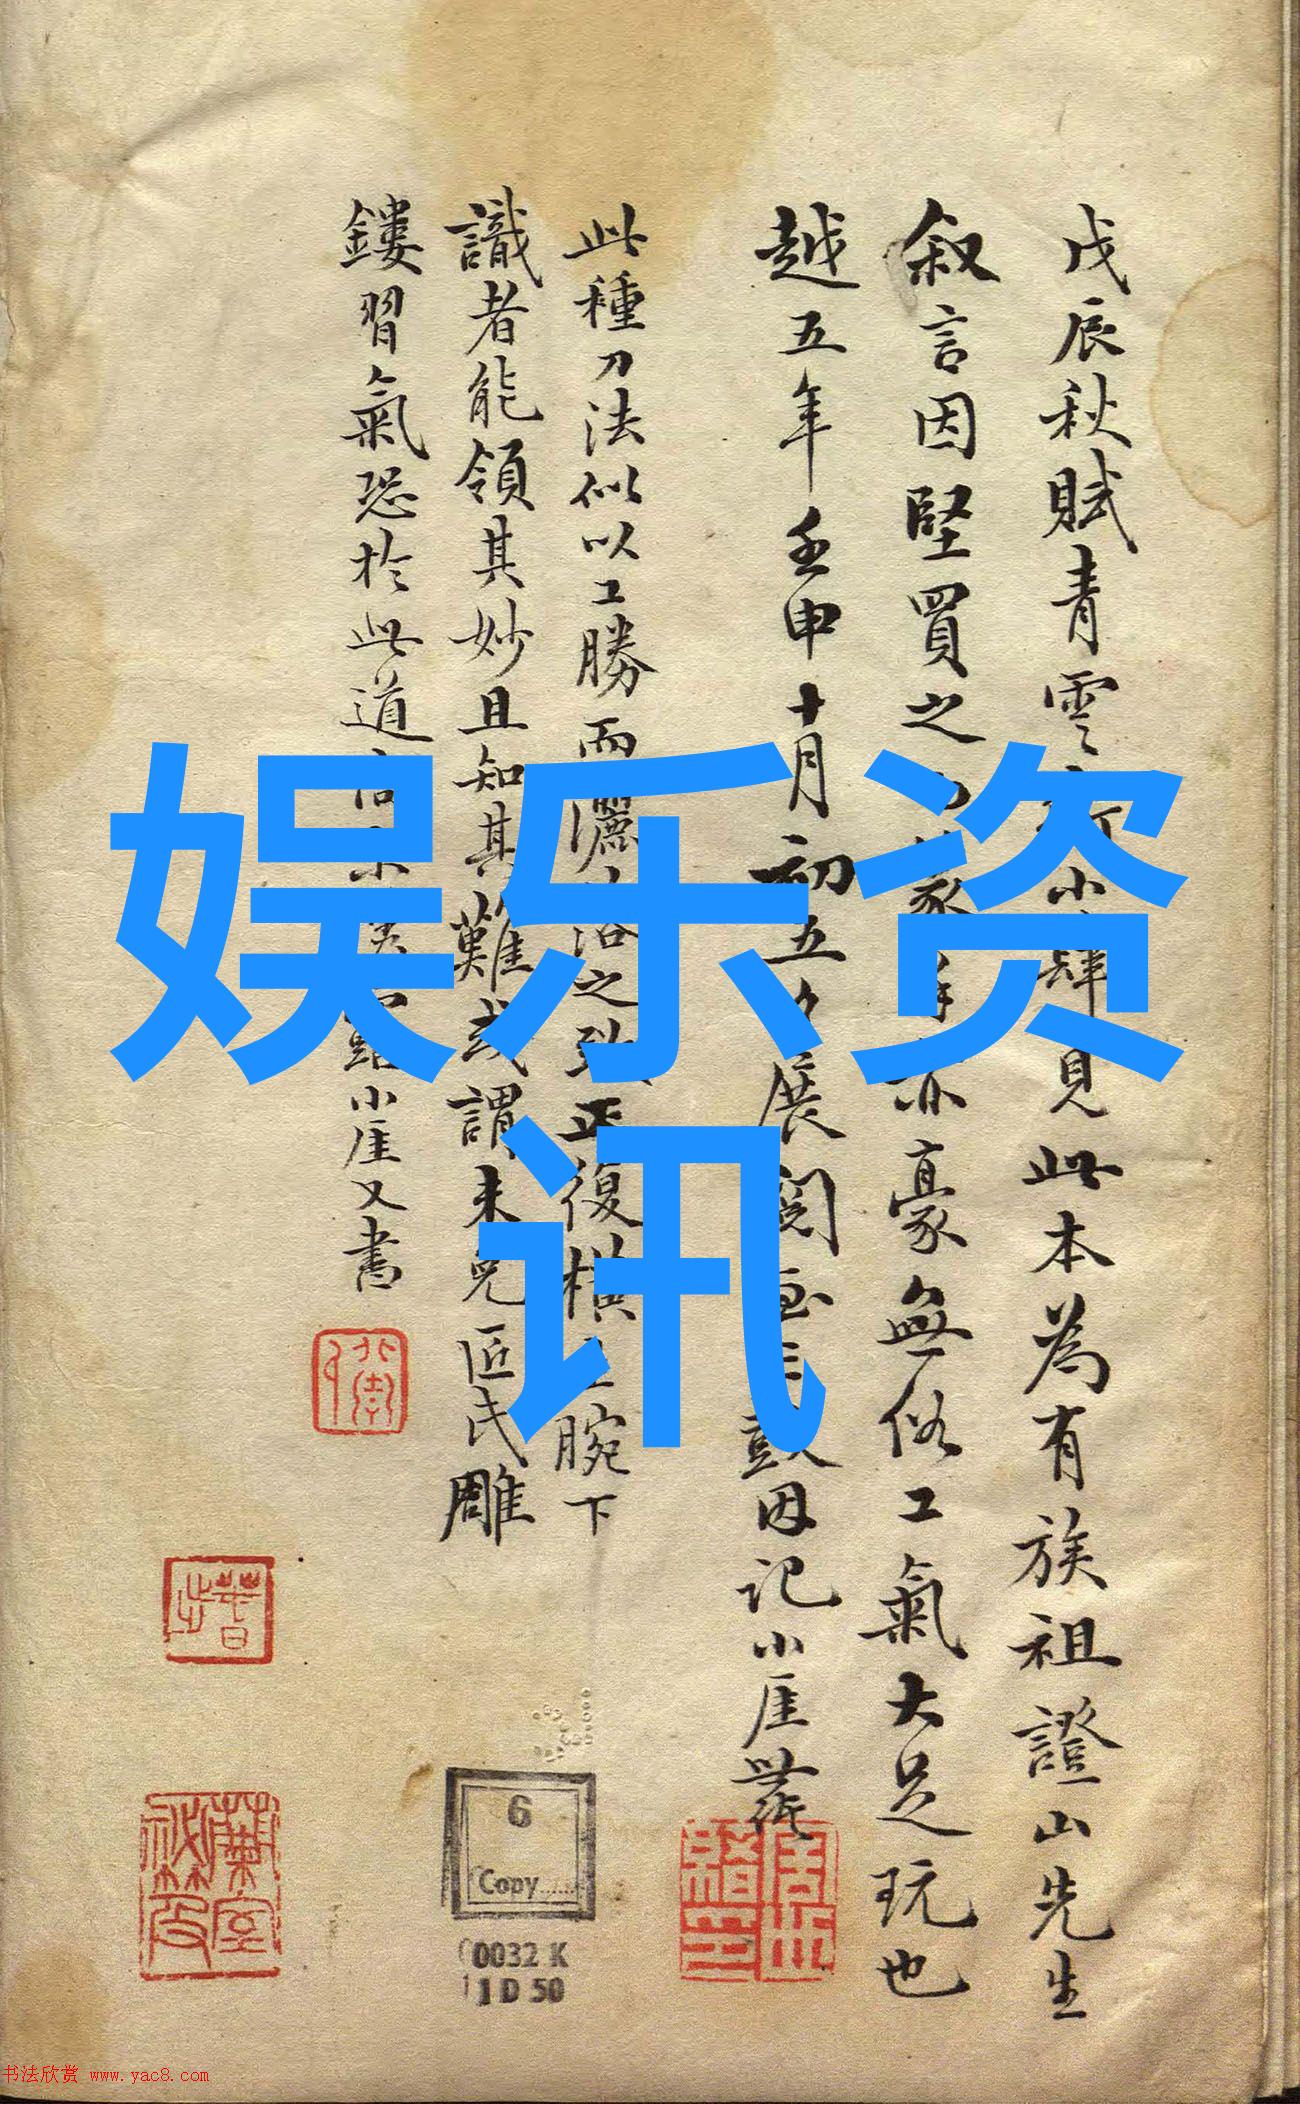 戊辰秋賦青雲小肆見此本為有族祖證山先生
叙言因堅買之豪無俗工氣大足玩也
越五年壬申十月初五展閱因記小厓
此種刀法似以工勝而灑落之致正復橫腕下
識者能領其妙且知其難或謂未免匠氏雕
鏤習氣恐於此道小厓又書
娱乐资
讯
6
Copy......
0032 K
1 D 50
书法欣赏 www.yac8.com